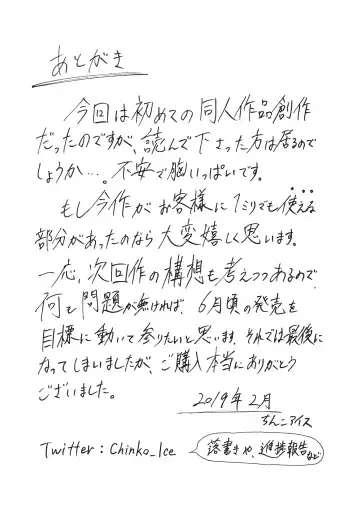 あとがき
今回は初めての同人作品創作
だったのですが、読んで下さった方は居るので
しょうか…。不安で胸いっぱいです。
もし今作がお客様に1ミリでも使える
部分があったのなら大変嬉しく思います。
一応、次回作の構想も考えつつあるので
何も問題が無ければ、6月頃の発売を
目標に動いて参りたいと思います。それでは最後に
なってしまいましたが、ご購入本当にありがとう
ございました。
2019年2月
ちんこアイス
Twitter:Chinko_Ice 落書きや、進捗報告など